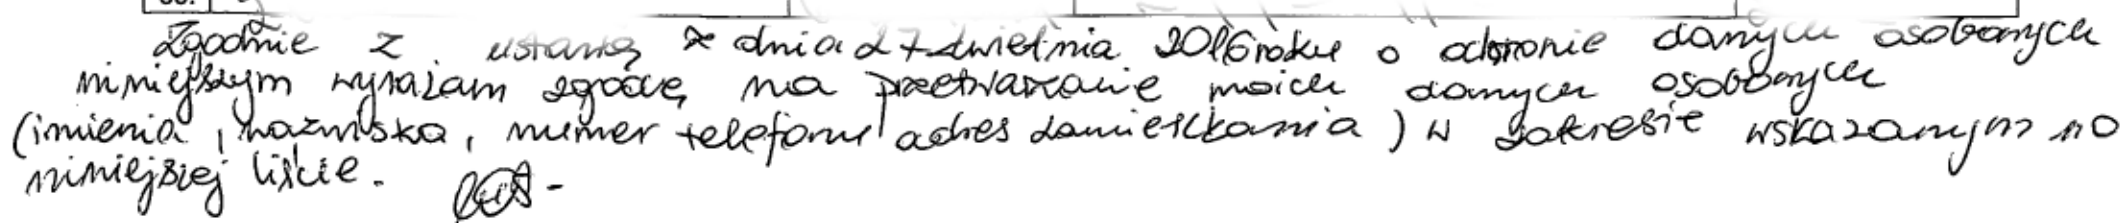 Zgodnie z ustawą z dnia 27 kwietnia 2016 roku o ochronie danych osobowych
niniejszym wyrażam zgodę, na przetwarzanie moich danych osobowych
(imienia, nazwiska, numer telefonu adres zamieszkania) w zakresie wskazanym na
niniejszej liście.